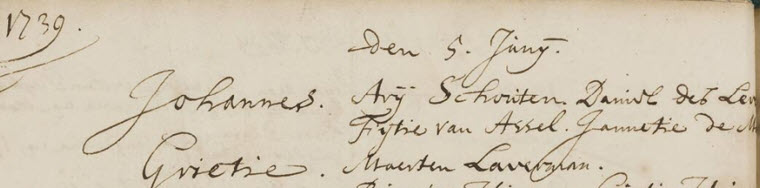 1739.
den 5. Junÿ.
Johannes. Arÿ Schouten. Daniel des
Fijtie van Assel. Jannetie de
Grietie. Maerten Laverman.